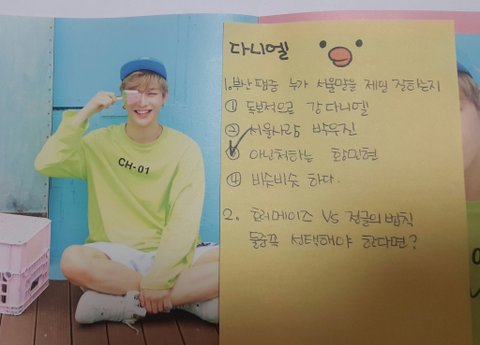 다니엘
1. 부산 팸중 누가 서울말을 제일 잘하는지
① 독보적으로 강다니엘
② 서울사람 박우진
③ 아닌척하는 황민현
④ 비슷비슷 하다.
2. 트리메이즈 VS 정글의 법칙
둘중꼭 선택해야 한다면?
CH-01